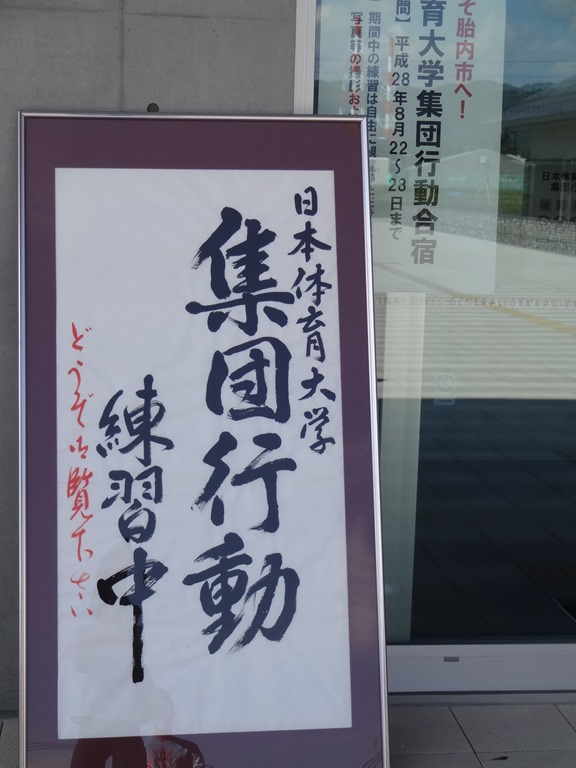 日本体育大学
集団行動
練習中
どうぞ御覧下さい
そ胎内市へ!
育大学集団行動合宿
間】平成28年8月22〜28日まで
期間中の練習は自由に
写真等の撮影およ
日本体
集団行